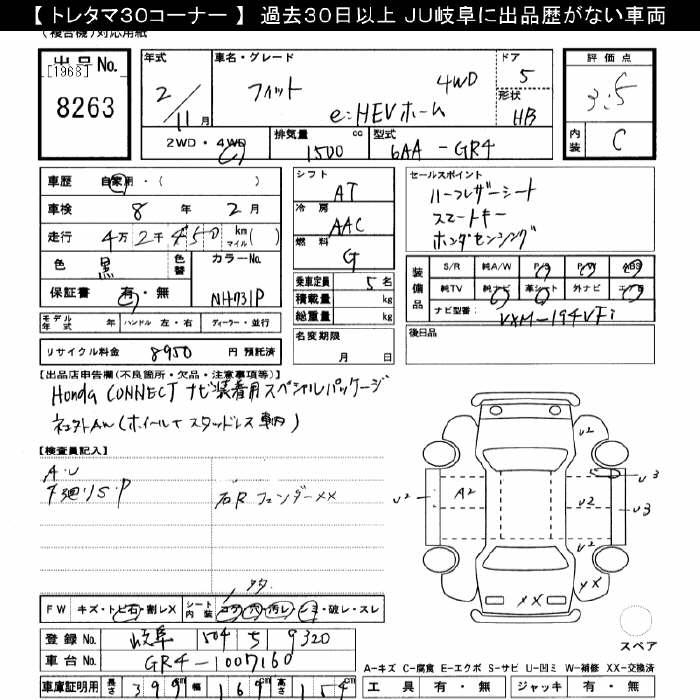 【 トレタマ30コーナー 】 過去30日以上 JU岐阜に出品歴がない車両
(複合機)対応用紙
出品No.
[1968]
8263
年式
2/11月
車名・グレード
フィット 4WD
e:HEVホーム
ドア
5
形状
HB
評価点
3.5
内装
C
2WD・4WD
排気量
1500 cc
型式
6AA-GR4
車歴 自家用・( )
車検 8年 2月
走行 4万2千450 km マイル( )
色 黒 色替
カラーNo.
NH731P
保証書 有・無
モデル年式 年 ハンドル 左・右 ディーラー・並行
リサイクル料金 8950 円 預託済
シフト
AT
冷房
AAC
燃料
G
乗車定員 5名
積載量 kg
総重量 kg
名変期限
月 日
セールスポイント
ハーフレザーシート
スマートキー
ホンダセンシング
装備品
S/R 純A/W P/S P/W ABS
純TV 純ナビ 革シート 外ナビ エアB
ナビ型番: VXM-194VFi
後日品
【出品店申告欄(不良箇所・欠品・注意事項等)】
Honda CONNECT ナビ装着用スペシャルパッケージ
(ホイール+スタッドレス 車内)
【検査員記入】
A・U
下廻りS・P
右Rフェンダー××
FW キズ・トビ石・割レX
シート内装 コゲ・穴・汚レ・シミ・破レ・スレ
登録No. 岐阜 504 5 9320
車台No. GR4-1007160
車庫証明用 長さ 399cm 幅 169cm 高さ 154cm
U2
U3
A2
U2
U2
U3
U2
XX
XX
スペア
A-キズ C-腐食 E-エクボ S-サビ U-凹ミ W-補修 XX-交換済
工具 有・無 ジャッキ 有・無